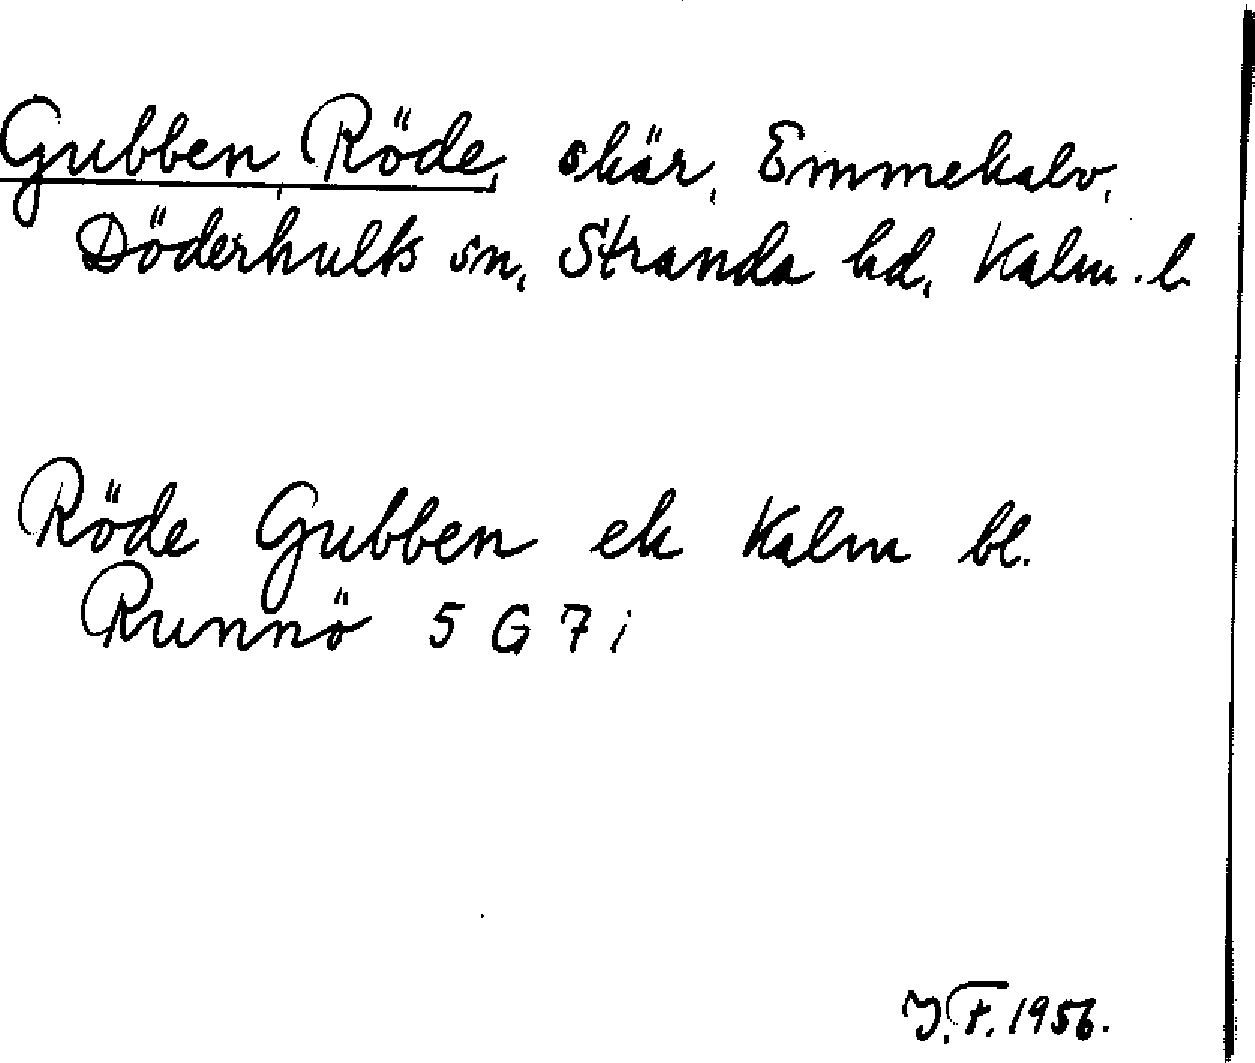 Gubben, Röde, skär, Emmekalv,
Döderhults sn, Stranda hd, Kalm. l.
Röde Gubben ek Kalm bl.
Runnö 5 G 7 i
J.F. 1956.